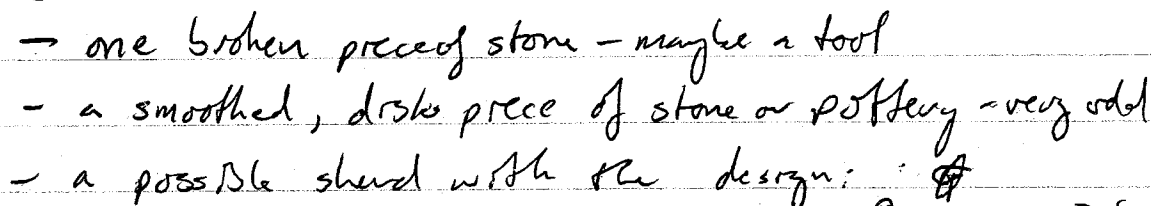 - one broken piece of stone - maybe a tool
- a smoothed, disk piece of stone or pottery - very odd
- a possible sherd with the design: